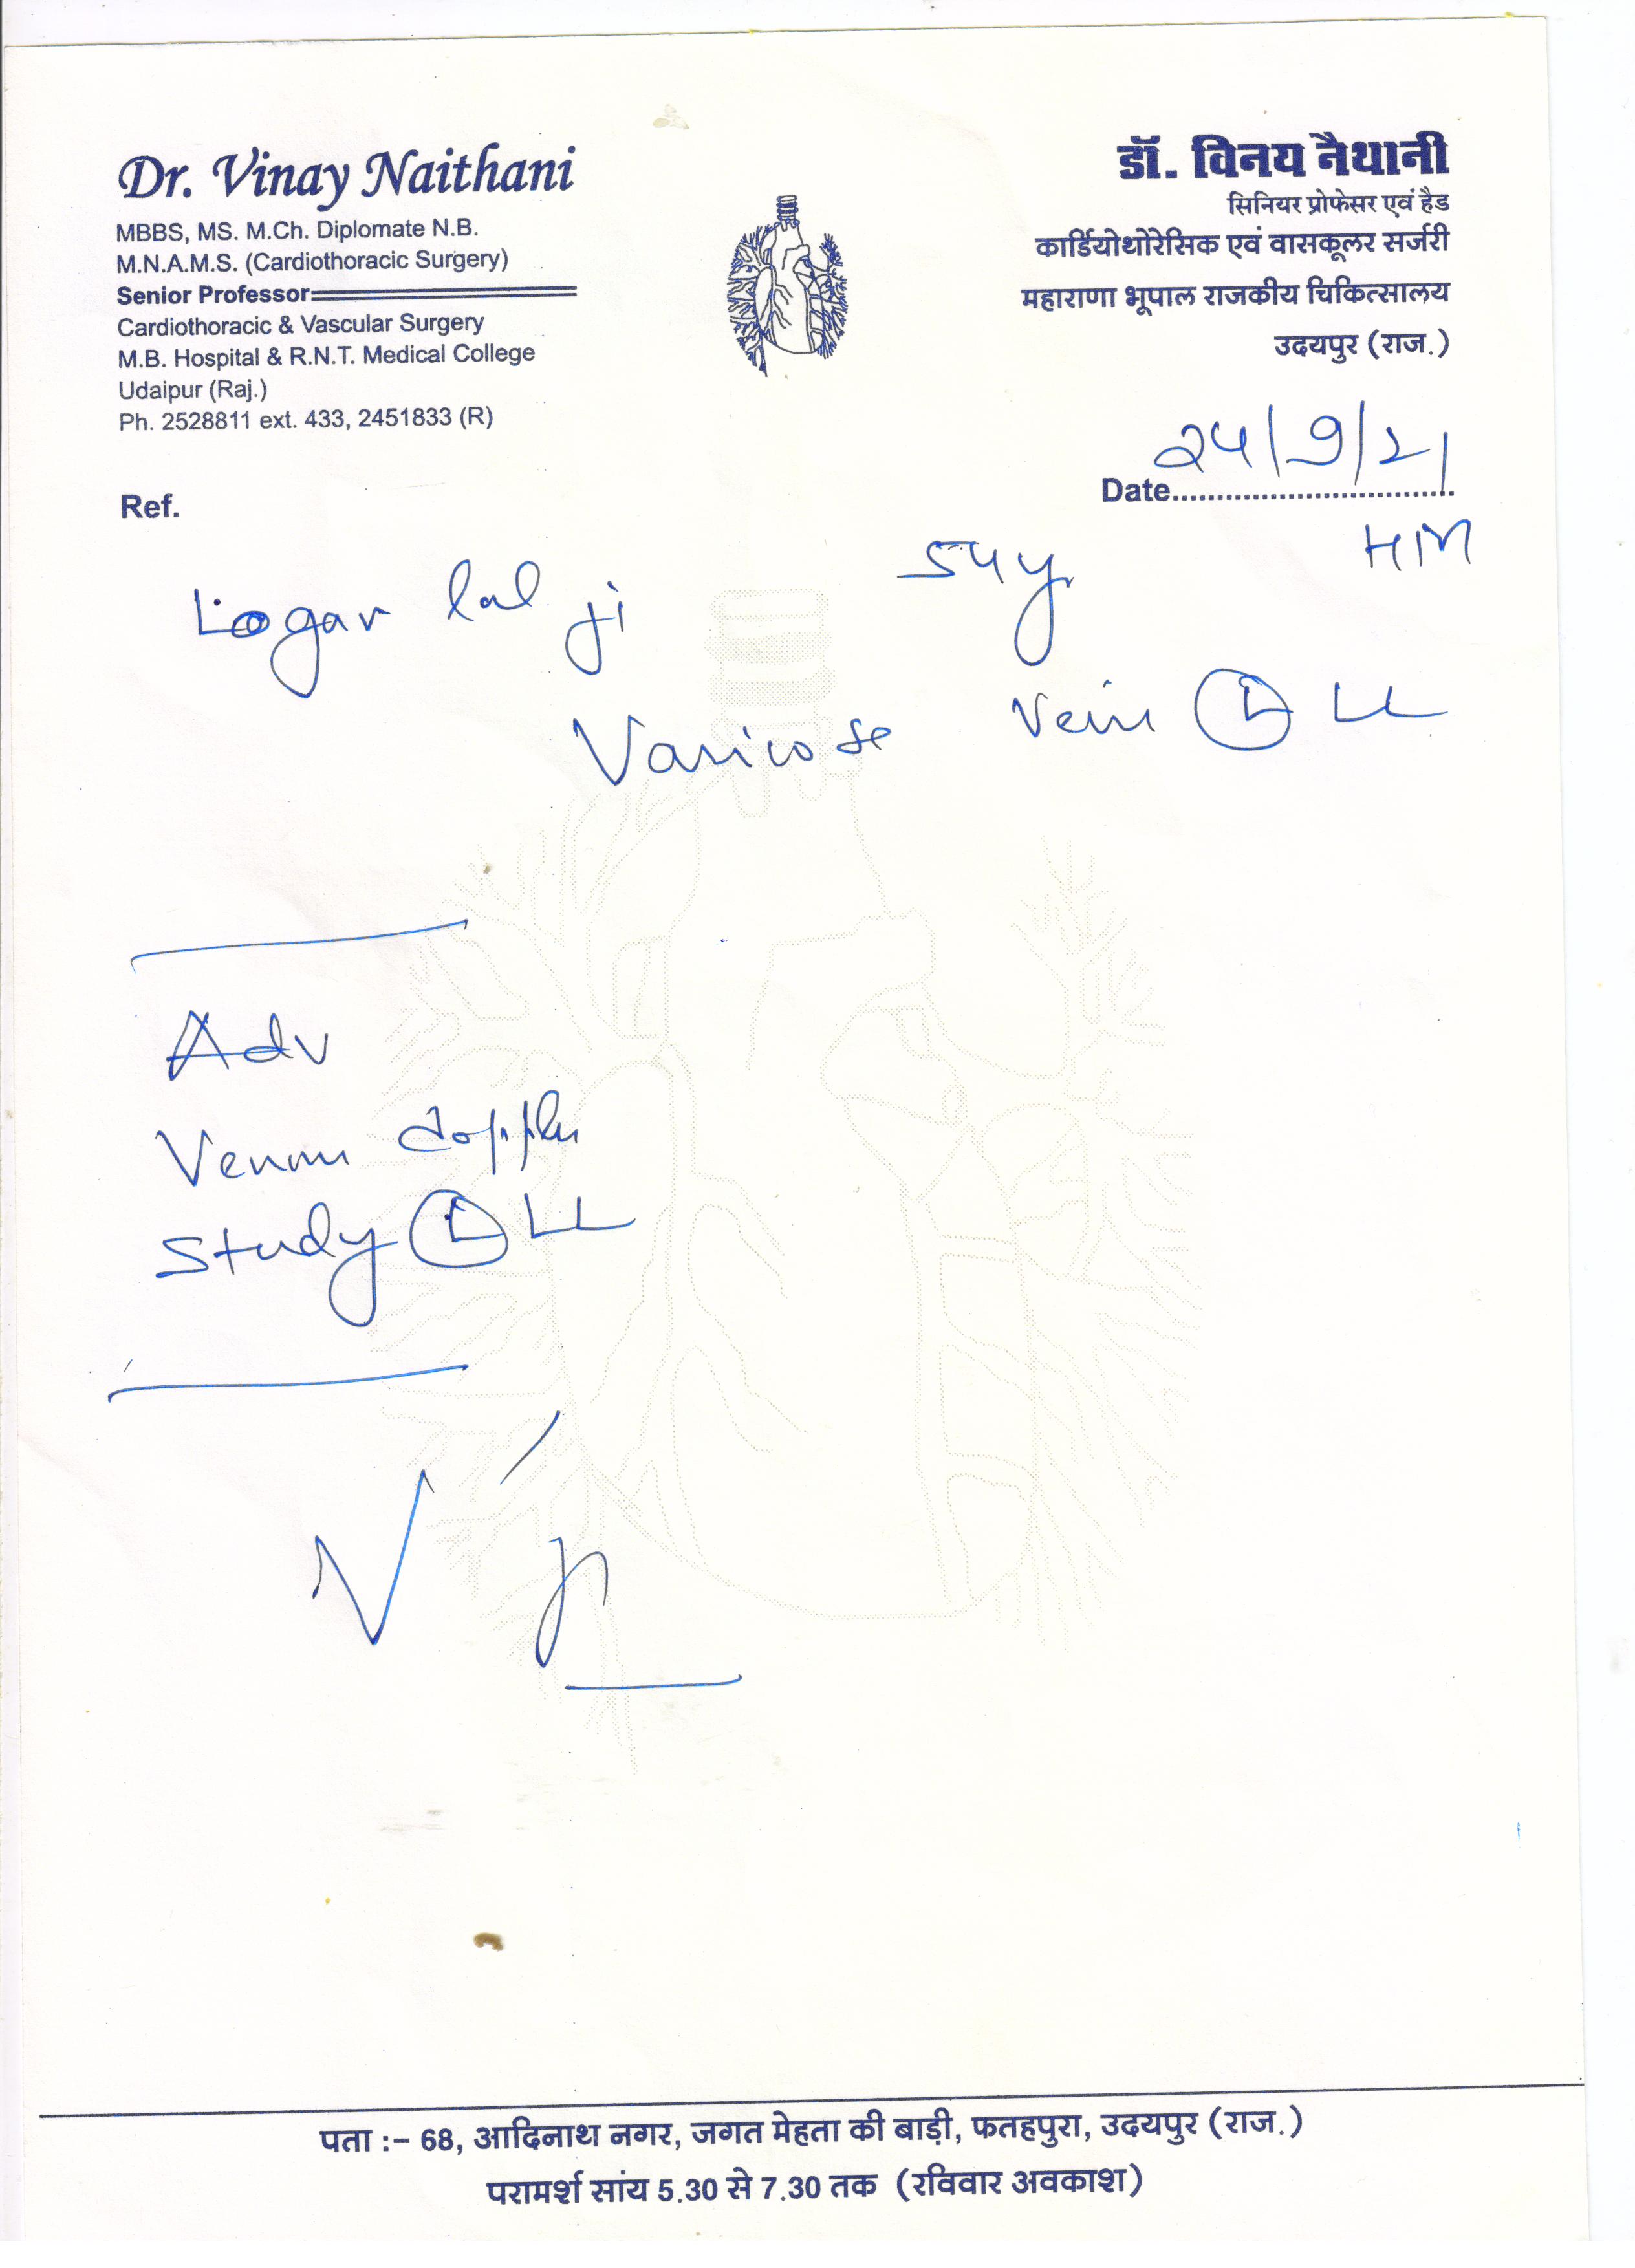 Dr. Vinay Naithani
MBBS, MS. M.Ch. Diplomate N.B.
M.N.A.M.S. (Cardiothoracic Surgery)
Senior Professor
Cardiothoracic & Vascular Surgery
M.B. Hospital & R.N.T. Medical College
Udaipur (Raj.)
Ph. 2528811 ext. 433, 2451833 (R)
डॉ. विनय नैथानी
सिनियर प्रोफेसर एवं हैड
कार्डियोथोरेसिक एवं वासकूलर सर्जरी
महाराणा भूपाल राजकीय चिकित्सालय
उदयपुर (राज.)
Ref.
Date 24/9/21
Logar lal ji 54y HIM
Varicose Vein Ⓛ LL
Adv
Venous doppler
Study Ⓛ LL
पता :– 68, आदिनाथ नगर, जगत मेहता की बाड़ी, फतहपुरा, उदयपुर (राज.)
परामर्श सांय 5.30 से 7.30 तक (रविवार अवकाश)